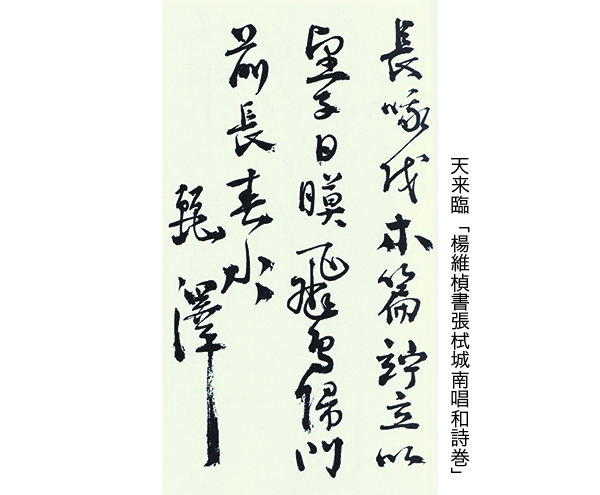 長哦伐木篇竚立以
望子日暯飛鳥歸門
前長春水
麗澤
天来臨「楊維楨書張栻城南唱和詩巻」